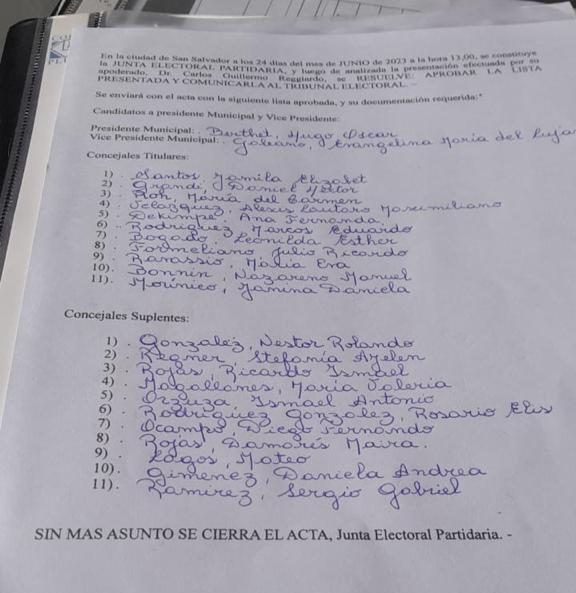 En la ciudad de San Salvador a los 24 dias del mes de JUNIO de 2023 a la hora 13,00, se constituye
la JUNTA ELECTORAL PARTIDARIA, y luego de analizada la presentación efectuada por su
apoderado, Dr. Carlos Guillermo Reggiardo, se RESUELVE: APROBAR LA LISTA
PRESENTADA Y COMUNICARLA AL TRIBUNAL ELECTORAL. -
Se enviará con el acta con la siguiente lista aprobada, y su documentación requerida:*
Candidatos a presidente Municipal y Vice Presidente:
Presidente Municipal: Berthet, Hugo Oscar
Vice Presidente Municipal: Galeano, Evangelina María del Luján
Concejales Titulares:
1) . Santos, Yamila Elizabet
2) . Grandi, Daniel Héctor
3) . Roh, María del Carmen
4) . Velazquez, Alexis Lautaro Maximiliano
5) . Dekimpe, Ana Fernanda
6) . Rodriguez Marcos Eduardo
7) . Bogado, Leonilda Esther
8) . Formeliano, Julio Ricardo
9) . María Eva
10) . Bonnin, Nazareno Manuel
11) . Janina Daniela
Concejales Suplentes:
1) . Gonzalez, Nestor Rolando
2) . Regner, Stefanía Ayelen
3) . Rojas, Ricardo Ismael
4) . Magallanes, María Valeria
5) . Urzuza, Ismael Antonio
6) . Rodriguez Gonzalez, Rosario Elis
7) . Ocampo, Diego Fernando
8) . Rojas, Damarís Maira.
9) . Lagos, Mateo
10) . Gimenez, Daniela Andrea
11) . Ramirez, Sergio Gabriel
SIN MAS ASUNTO SE CIERRA EL ACTA, Junta Electoral Partidaria. -